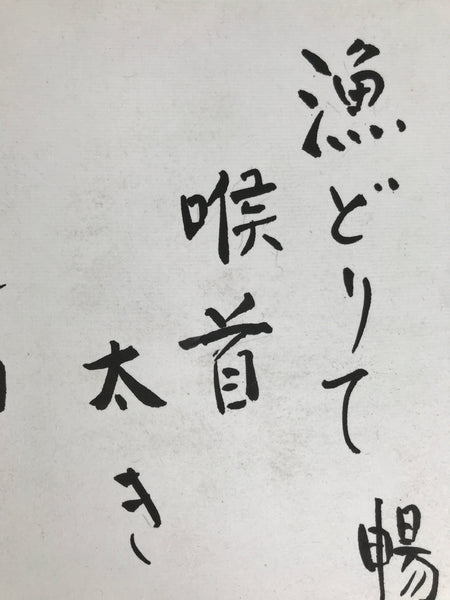 暢
漁どりて
喉首
太き